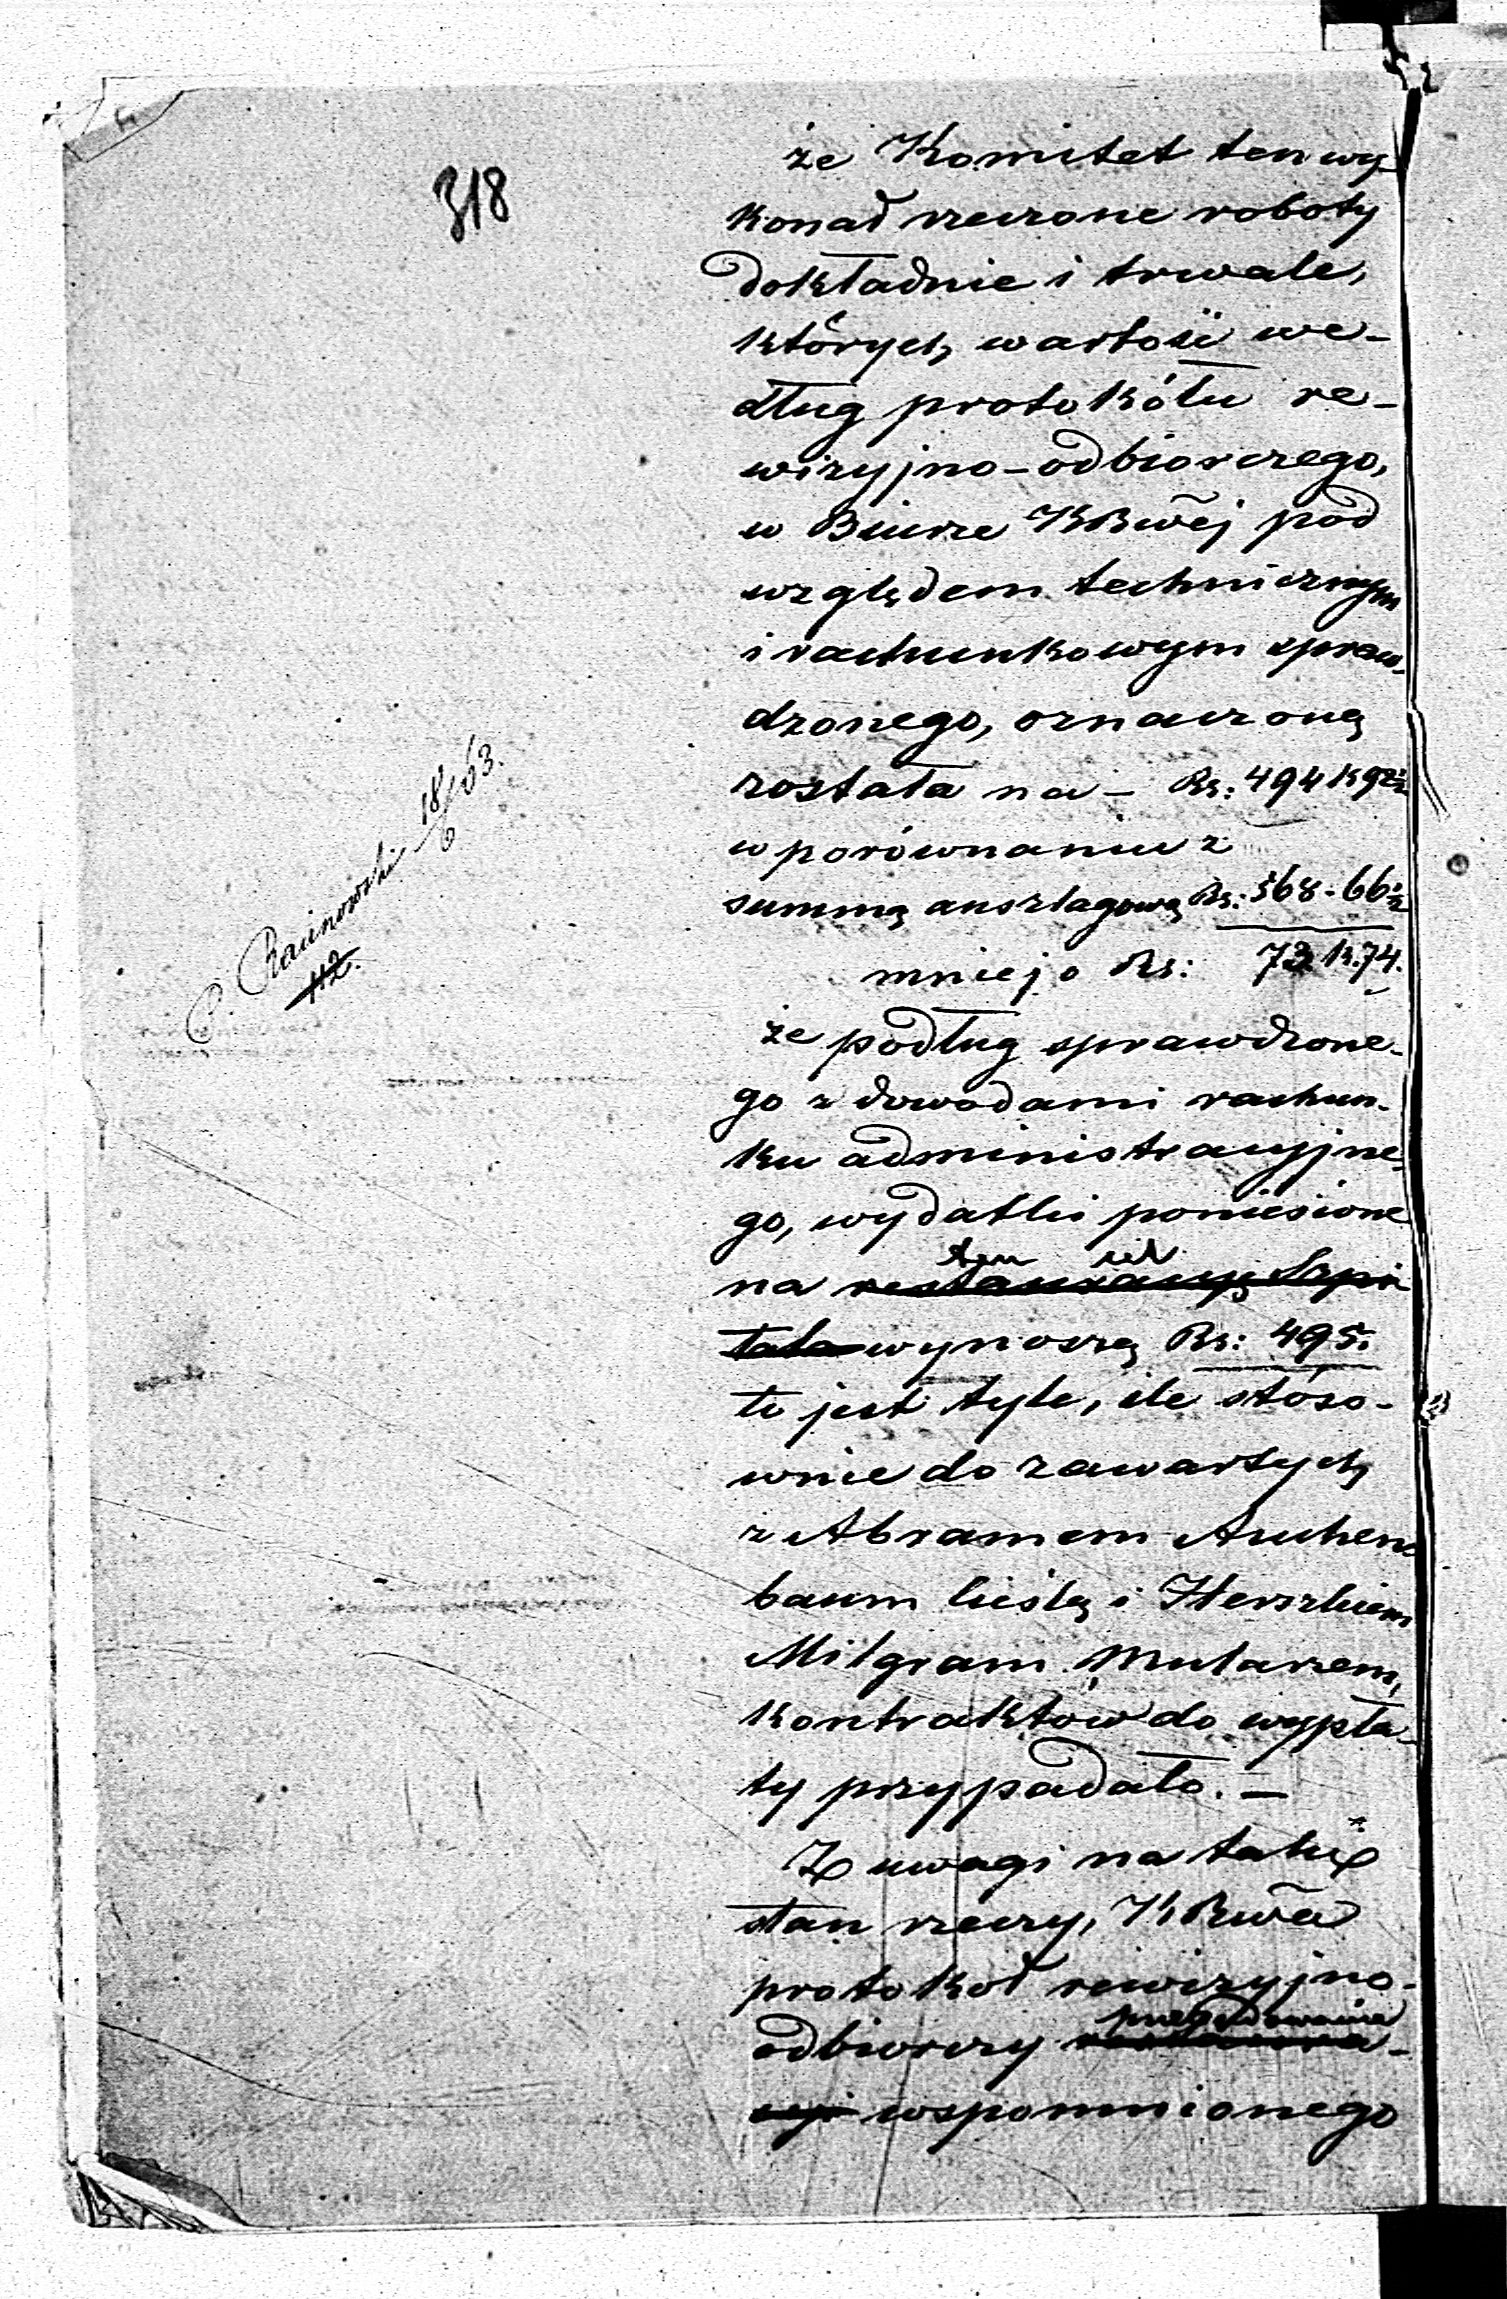 318
że Komitet ten wy-
konał rzeczone roboty
dokładnie i trwale,
których wartość we-
dług protokółu re-
wizyjno-odbiorczego,
w Biurze KRwej pod
względem technicznym
i rachunkowym spraw-
dzonego, oznaczoną
została na – Rs: 494 k 92½
w porównaniu z
summą anszlagową Rs: 568 - 66½
mniej o Rs: 73 k. 74.
że podług sprawdzone-
go z dowodami rachun-
ku administracyjne-
go, wydatki poniesione
ten cel
na restauracyę Szpi
tala wynoszą Rs: 495.
to jest tyle, ile stóso-
wnie do zawartych
z Abramem Auchen-
baum cieślą i Herszkiem
Milgram Mularzem,
kontraktów do wypła-
ty przypadało. –
Z uwagi na taki
stan rzeczy, KRwa
protokół rewizyjno-
odbiorczy
wspomnionego
P. Racinowski 18/6 63.
112.